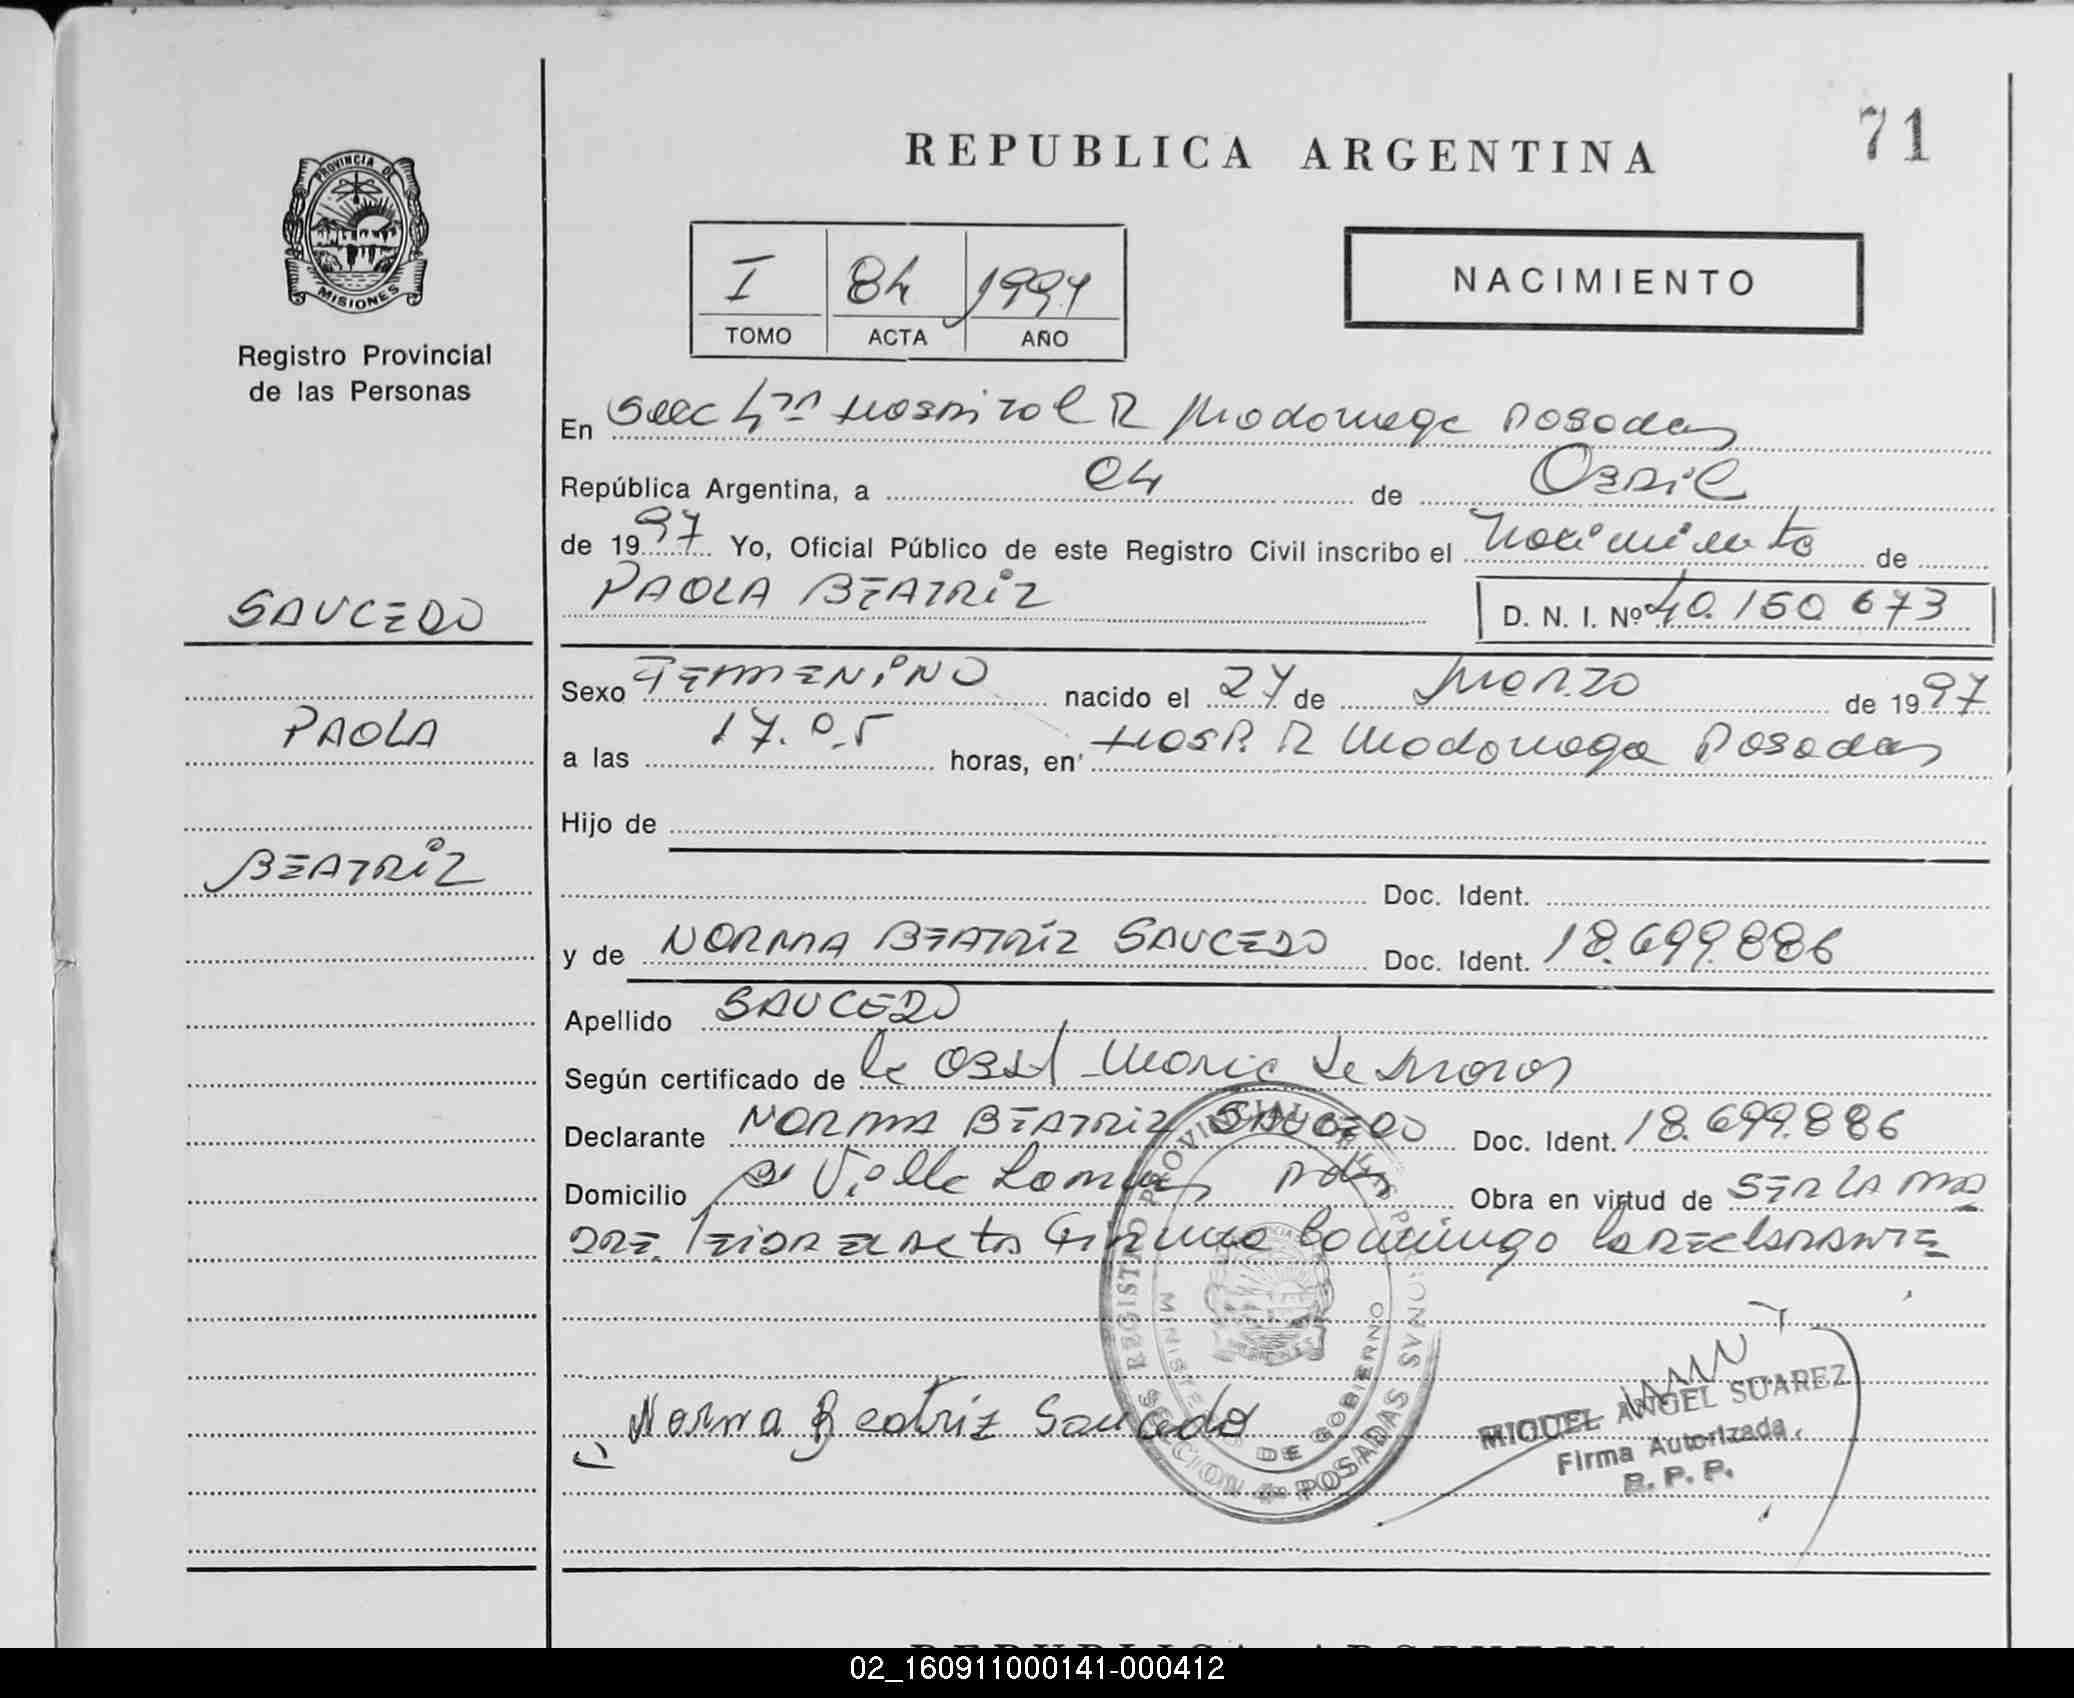 71
REPUBLICA ARGENTINA
PROVINCIA DE
MISIONES
Registro Provincial
de las Personas
I 84 1997
TOMO ACTA AÑO
NACIMIENTO
En Secc 4ta Hospital R Madariaga Posadas
República Argentina, a 04 de Abril
de 1997 Yo, Oficial Público de este Registro Civil inscribo el Nacimiento de
PAOLA BEATRIZ D. N. I. Nº 40.150 673
SAUCEDO
PAOLA
BEATRIZ
Sexo FEMENINO nacido el 27 de Marzo de 1997
a las 17.05 horas, en Hosp. R Madariaga Posadas
Hijo de
Doc. Ident.
y de NORMA BEATRIZ SAUCEDO Doc. Ident. 18.699.886
Apellido SAUCEDO
Según certificado de la Obst Maria de
Declarante NORMA BEATRIZ SAUCEDO Doc. Ident. 18.699.886
Domicilio Bº Villa Pdas Obra en virtud de SER LA MA
DRE. Leida el Acta Firma Conmigo la declarante
Norma Beatriz Saucedo
REGISTRO PROVINCIAL DE LAS PERSONAS
MINISTERIO DE GOBIERNO
SECCION 4a POSADAS
MIGUEL ANGEL SUAREZ
Firma Autorizada
R. P. P.
REPUBLICA ARGENTINA
02_160911000141-000412